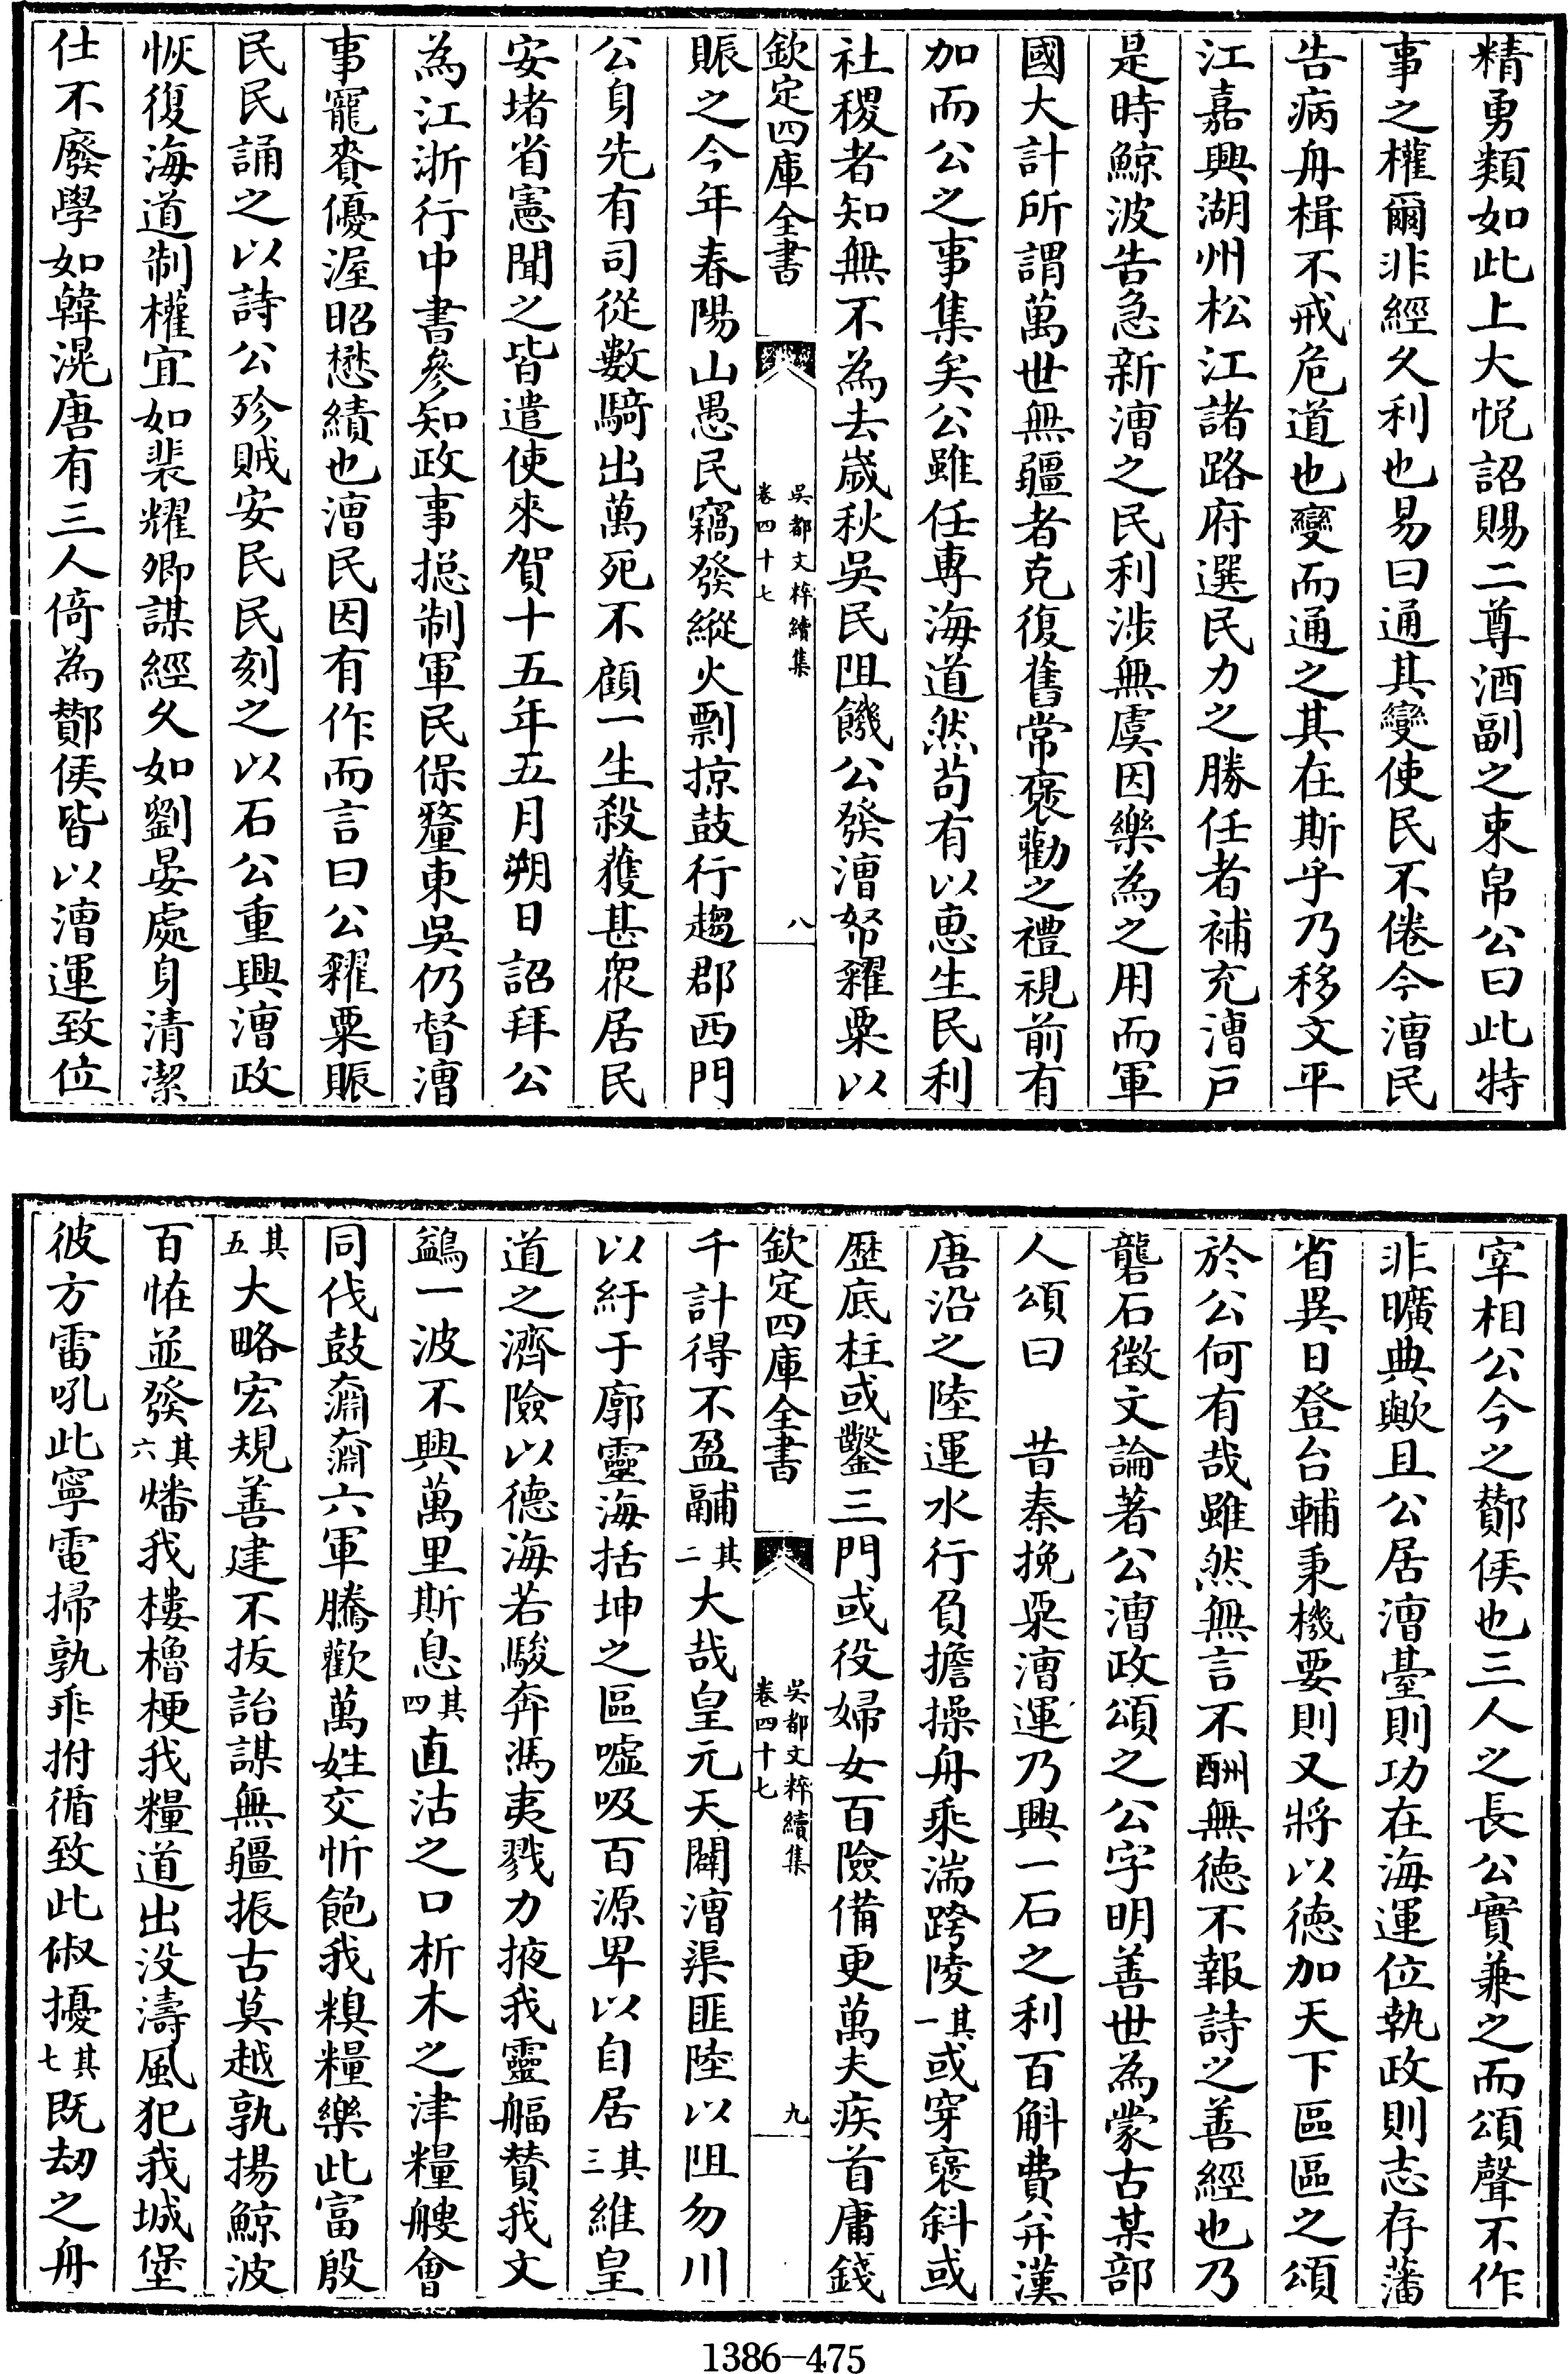 精勇類如此上大悦詔賜二尊酒副之束帛公曰此特
事之權爾非經久利也易曰通其變使民不倦今漕民
告病舟楫不戒危道也變而通之其在斯乎乃移文平
江嘉興湖州松江諸路府選民力之勝任者補充漕戸
是時鯨波告急新漕之民利涉無虞因樂為之用而軍
國大計所謂萬世無疆者克復舊常褒勸之禮視前有
加而公之事集矣公雖任專海道然苟有以惠生民利
社稷者知無不為去嵗秋吳民阻饑公發漕帑糴粟以
欽定四庫全書
吳都文粹續集
卷四十七
八
賑之今年春陽山愚民竊發縱火剽掠鼓行趨郡西門
公身先有司從數騎出萬死不顧一生殺獲甚衆居民
安堵省憲聞之皆遣使來賀十五年五月朔日詔拜公
為江浙行中書參知政事揔制軍民保釐東吳仍督漕
事寵賚優渥昭懋績也漕民因有作而言曰公糴粟賑
民民誦之以詩公殄賊安民民刻之以石公重興漕政
恢復海道制權宜如裴耀卿謀經久如劉晏處身清潔
仕不廢學如韓滉唐有三人倚為酇侯皆以漕運致位
宰相公今之酇侯也三人之長公實兼之而頌聲不作
非曠典歟且公居漕臺則功在海運位執政則志存藩
省異日登台輔秉機要則又將以德加天下區區之頌
於公何有哉雖然無言不酬無德不報詩之善經也乃
礱石徵文論著公漕政頌之公字明善世為蒙古某部
人頌曰　昔秦挽粟漕運乃興一石之利百斛費并漢
唐沿之陸運水行負擔操舟乘湍跨陵其一或穿褒斜或
歴底柱或鑿三門或役婦女百險備更萬夫疾首庸錢
欽定四庫全書
吳都文粹續集
卷四十七
九
千計得不盈鬴其二大哉皇元天闢漕渠匪陸以阻勿川
以紆于廓靈海括坤之區嘘吸百源卑以自居其三維皇
道之濟險以德海若駿奔馮夷戮力掖我靈艑贊我文
鷁一波不興萬里斯息其四直沽之口析木之津糧艘會
同伐鼓鼘鼘六軍騰歡萬姓交忻飽我糗糧樂此富殷
其五大略宏規善建不拔詒謀無疆振古莫越孰揚鯨波
百恠並發其六燔我樓櫓梗我糧道出没濤風犯我城堡
彼方雷吼此寧電掃孰乖拊循致此俶擾其七既劫之舟
1386-475